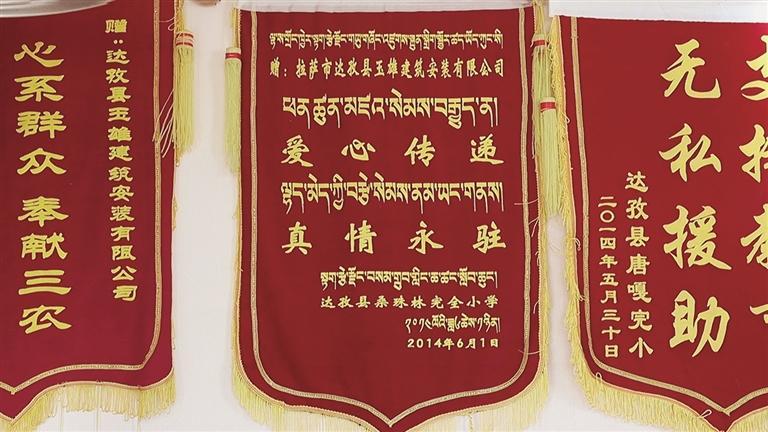 赠：达孜县玉雄建筑安装有限公司
心系群众 奉献三农
赠：拉萨市达孜县玉雄建筑安装有限公司
ཕན་ཚུན་མཛའ་སེམས་བརྒྱུད་ན།
爱心传递
ལྷད་མེད་ཀྱི་བརྩེ་སེམས་ནམ་ཡང་གནས།
真情永驻
སྟག་རྩེ་རྫོང་བསམ་གྲུབ་གླིང་ཆ་ཚང་སློབ་ཆུང་
达孜县桑珠林完全小学
༢༠༡༤ལོའི་ཟླ༦ཚེས་༡ཉིན།
2014年6月1日
无私援助
达孜县唐嘎完小
二〇一四年五月三十日